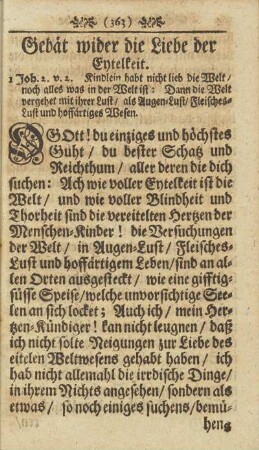 (363)
Gebät wider die Liebe der
Eytelkeit.
1 Joh. 2. v. 2. Kindlein habt nicht lieb die Welt /
noch alles was in der Welt ist: Dann die Welt
vergehet mit ihrer Lust / als Augen-Lust / Fleisches-
Lust und hoffärtiges Wesen.
O GOtt! du einziges und höchstes
Guht / du bester Schatz und
Reichthum / aller deren die dich
suchen: Ach wie voller Eytelkeit ist die
Welt / und wie voller Blindheit und
Thorheit sind die vereitelten Hertzen der
Menschen-Kinder! die Versuchungen
der Welt / in Augen-Lust / Fleisches-
Lust und hoffärtigem Leben / sind an al-
len Orten ausgesteckt / wie eine gifftig-
süsse Speise / welche unvorsichtige See-
len an sich locket; Auch ich / mein Her-
tzen-Kündiger! kan nicht leugnen / daß
ich nicht solte Neigungen zur Liebe des
eitelen Weltwesens gehabt haben / ich
hab nicht allemahl die irrdische Dinge /
in ihrem Nichts angesehen / sondern als
etwas / so noch einiges suchens / bemü-
hens